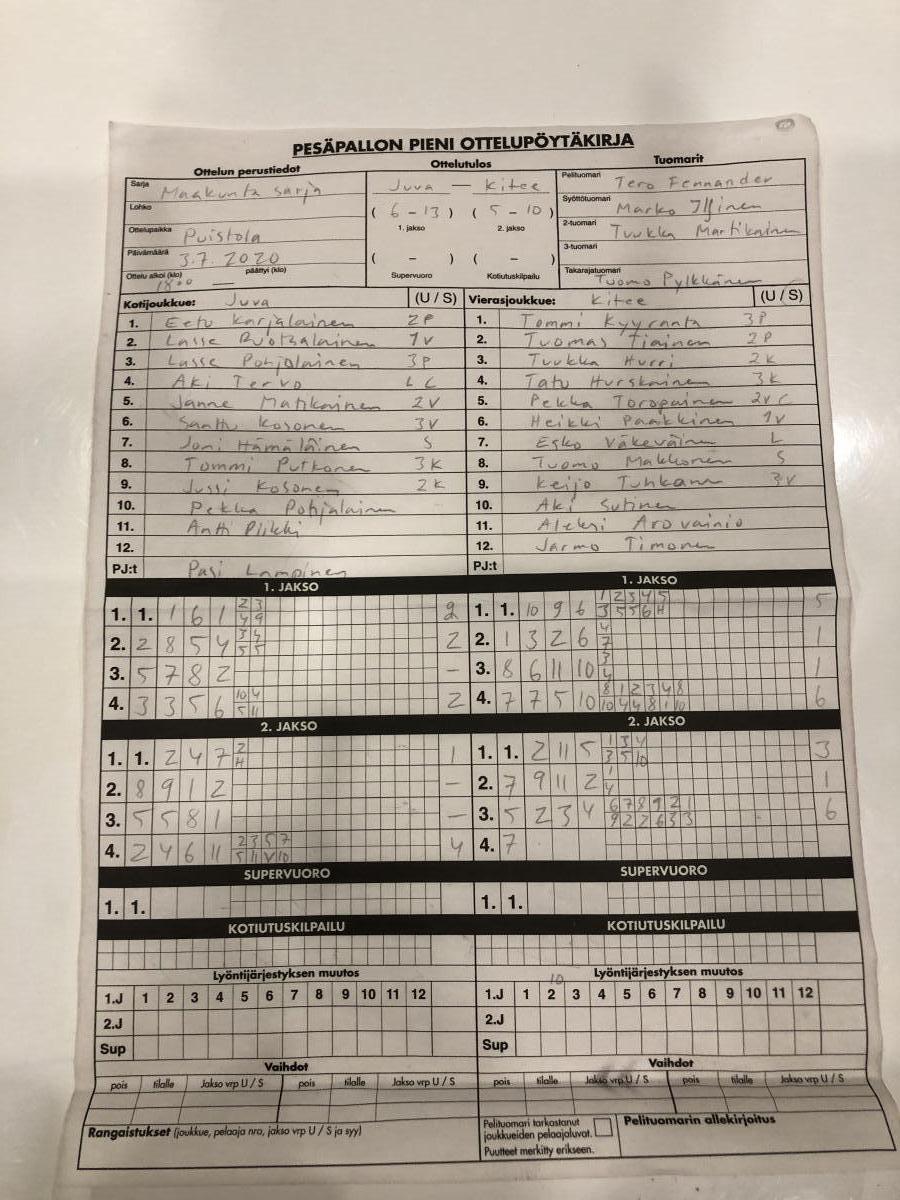 PESÄPALLON PIENI OTTELUPÖYTÄKIRJA
Ottelun perustiedot Ottelutulos Tuomarit
Sarja Maakunta sarja
Lohko
Ottelupaikka Puistola
Päivämäärä 3.7.2020
Ottelu alkoi (klo) 18°° päättyi (klo) —
Juva — Kitee
( 6 - 13 ) ( 5 - 10 )
1. jakso 2. jakso
( - ) ( - )
Supervuoro Kotiutuskilpailu
Pelituomari Tero Fennander
Syöttötuomari Marko
2-tuomari Tuukka Martikainen
3-tuomari
Takarajatuomari Tuomo Pylkkänen
Kotijoukkue: Juva (U / S)
1. Eetu Karjalainen 2P
2. Lasse Ruotsalainen 1V
3. Lasse Pohjolainen 3P
4. Aki Tervo L C
5. Janne Matikainen 2V
6. Santtu Kosonen 3V
7. Joni Hämäläinen S
8. Tommi Putkonen 3K
9. Jussi Kosonen 2K
10. Pekka Pohjalainen
11. Antti Piikki
12.
PJ:t Pasi Lampinen
Vierasjoukkue: Kitee (U / S)
1. Tommi Kyyranta 3P
2. Tuomas Tiainen 2P
3. Tuukka Hurri 2K
4. Tatu Hurskainen 3K
5. Pekka Toropainen 2V C
6. Heikki Paakkinen 1V
7. Esko Väkeväinen L
8. Tuomo Makkonen S
9. Keijo 3V
10. Aki Sutinen
11. Aleksi Arovainio
12. Jarmo Timonen
PJ:t
1. JAKSO
1. 1. 1 6 1 2 3 2
4 9
2. 2 8 5 4 3 4 2
5 5
3. 5 7 8 2 –
4. 3 3 5 6 10 4 2
5 11
2. JAKSO
1. 1. 2 4 7 2 1
H
2. 8 9 1 2 –
3. 5 5 8 1 –
4. 2 4 6 11 2 3 5 7 4
5 11 V 10
SUPERVUORO
1. 1.
KOTIUTUSKILPAILU
Lyöntijärjestyksen muutos
1.J 1 2 3 4 5 6 7 8 9 10 11 12
2.J
Sup
Vaihdot
pois tilalle Jakso vrp U / S pois tilalle Jakso vrp U / S
Rangaistukset (joukkue, pelaaja nro, jakso vrp U / S ja syy)
1. JAKSO
1. 1. 10 9 6 1 2 3 4 5 5
3 5 5 6 H
2. 1 3 2 6 4 1
7
3. 8 6 11 10 3 1
4
4. 7 7 5 10 8 1 2 3 4 8 6
10 4 4 8 1 10
2. JAKSO
1. 1. 2 11 5 1 3 4 3
3 5 10
2. 7 9 11 2 1 1
4
3. 5 2 3 4 6 7 8 9 2 1 6
9 2 2 6 3 3
4. 7
SUPERVUORO
1. 1.
KOTIUTUSKILPAILU
Lyöntijärjestyksen muutos
10
1.J 1 2 3 4 5 6 7 8 9 10 11 12
2.J
Sup
Vaihdot
pois tilalle Jakso vrp U / S pois tilalle Jakso vrp U / S
Pelituomari tarkastanut
joukkueiden pelaajaluvat.
Puutteet merkitty erikseen.
Pelituomarin allekirjoitus